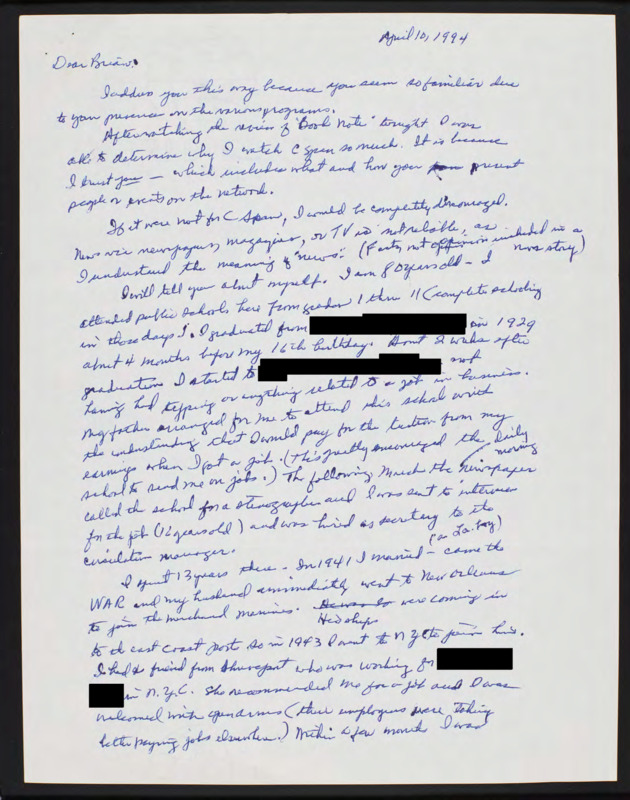 April 10, 1994
Dear Brian,
I address you this way because you seem so familiar due
to your presence on the various programs.
After watching the review of "Book Note" tonight I was
able to determine why I watch C Span so much. It is because
I trust you — which includes what and how you present
people or events on the network.
If it were not for C Span, I would be completely discouraged.
News via newspapers, magazines, or TV is not reliable, as
I understand the meaning of "news". (Facts, not opinion included in a
news story)
I will tell you about myself. I am 80 years old — I
attended public schools here from grades 1 thru 11 (complete schooling
in those days). I graduated from in 1929
about 4 months before my 16th birthday. About 2 weeks after
graduation I started to not
having had typing or anything related to a job in business.
My father arranged for me to attend this school with
the understanding that I would pay for the tuition from my
earnings when I got a job. (This greatly encouraged the
school to send me on jobs.) The following March the daily
morning
newspaper
called the school for a stenographer and I was sent to interview
for the job (16 years old) and was hired as secretary to the
circulation manager.
I spent 13 years there — In 1941 I married — came the
WAR and my husband immediately went to New Orleans
to join the merchant marines. were coming in
His ships
to the east coast ports so in 1943 I went to NYC to join him.
I had a friend from Shreveport who was working for
in N.Y.C. She recommended me for a job and I was
welcomed with open arms (their employees were taking
better paying jobs elsewhere.) Within a few months I was